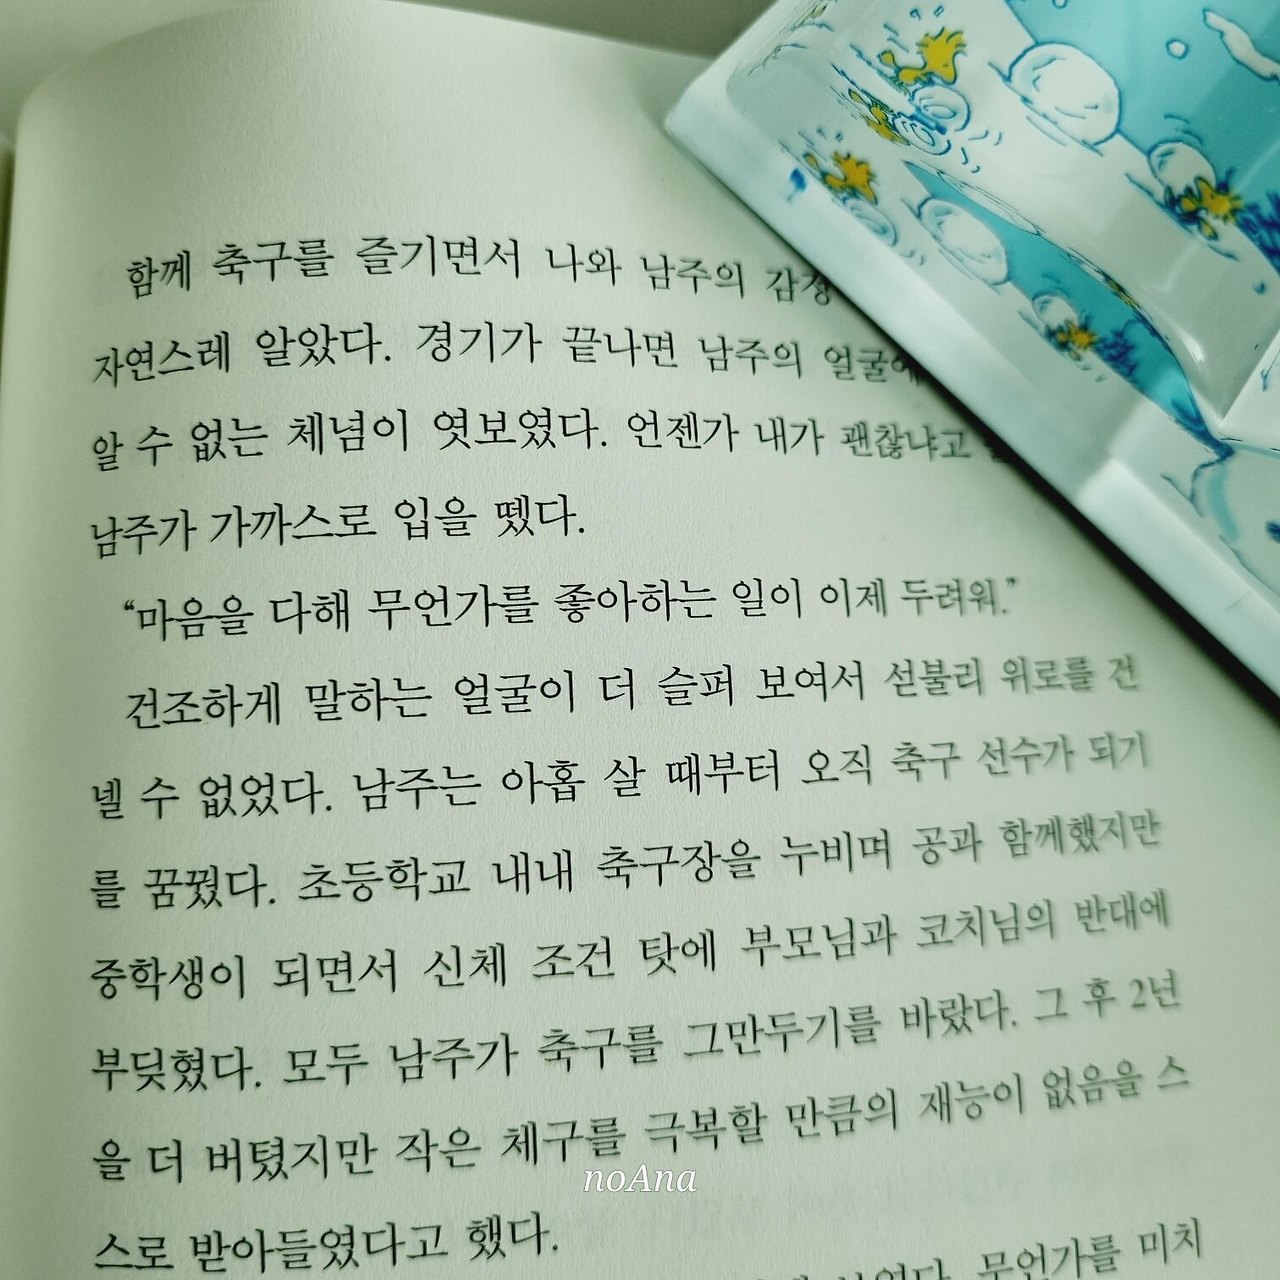 함께 축구를 즐기면서 나와 남주의
자연스레 알았다. 경기가 끝나면 남주의
알 수 없는 체념이 엿보였다. 언젠가 내가 괜찮냐고
남주가 가까스로 입을 뗐다.
“마음을 다해 무언가를 좋아하는 일이 이제 두려워.”
건조하게 말하는 얼굴이 더 슬퍼 보여서 섣불리 위로를 건
넬 수 없었다. 남주는 아홉 살 때부터 오직 축구 선수가 되기
를 꿈꿨다. 초등학교 내내 축구장을 누비며 공과 함께했지만
중학생이 되면서 신체 조건 탓에 부모님과 코치님의 반대에
부딪혔다. 모두 남주가 축구를 그만두기를 바랐다. 그 후 2년
을 더 버텼지만 작은 체구를 극복할 만큼의 재능이 없음을 스
noAna
스로 받아들였다고 했다.
무언가를 미치